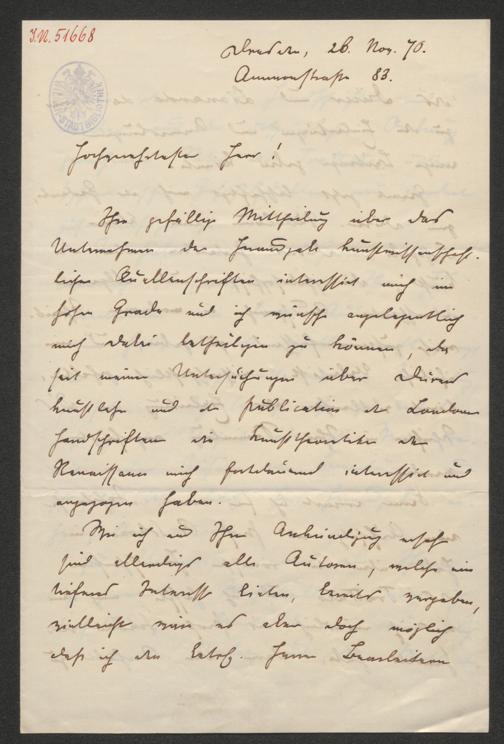 I.N. 51668
WIENER STADTBIBLIOTHEK
Dresden, 26. Nov. 70.
Ammonstraße 83.
Hochgeehrtester Herr!
Ihre gefällige Mittheilung über das
Unternehmen der Herausgabe kunstwissenschaft-
licher Quellenschriften interessirt mich im
hohen Grade und ich wünsche angelegentlich
mich dabei betheiligen zu können, da
seit meinen Untersuchungen über Dürers
Kunstlehre und die Publication der Londoner
Handschriften die Kunsttheoretiker der
Renaissance mich fortdauernd interessirt und
angezogen haben.
Wie ich aus Ihrer Ankündigung ersehe
sind allerdings alle Autoren, welche ein
tieferes Interesse bieten, bereits vergeben,
vielleicht wäre es aber doch möglich
daß ich den Herrn Bearbeitern